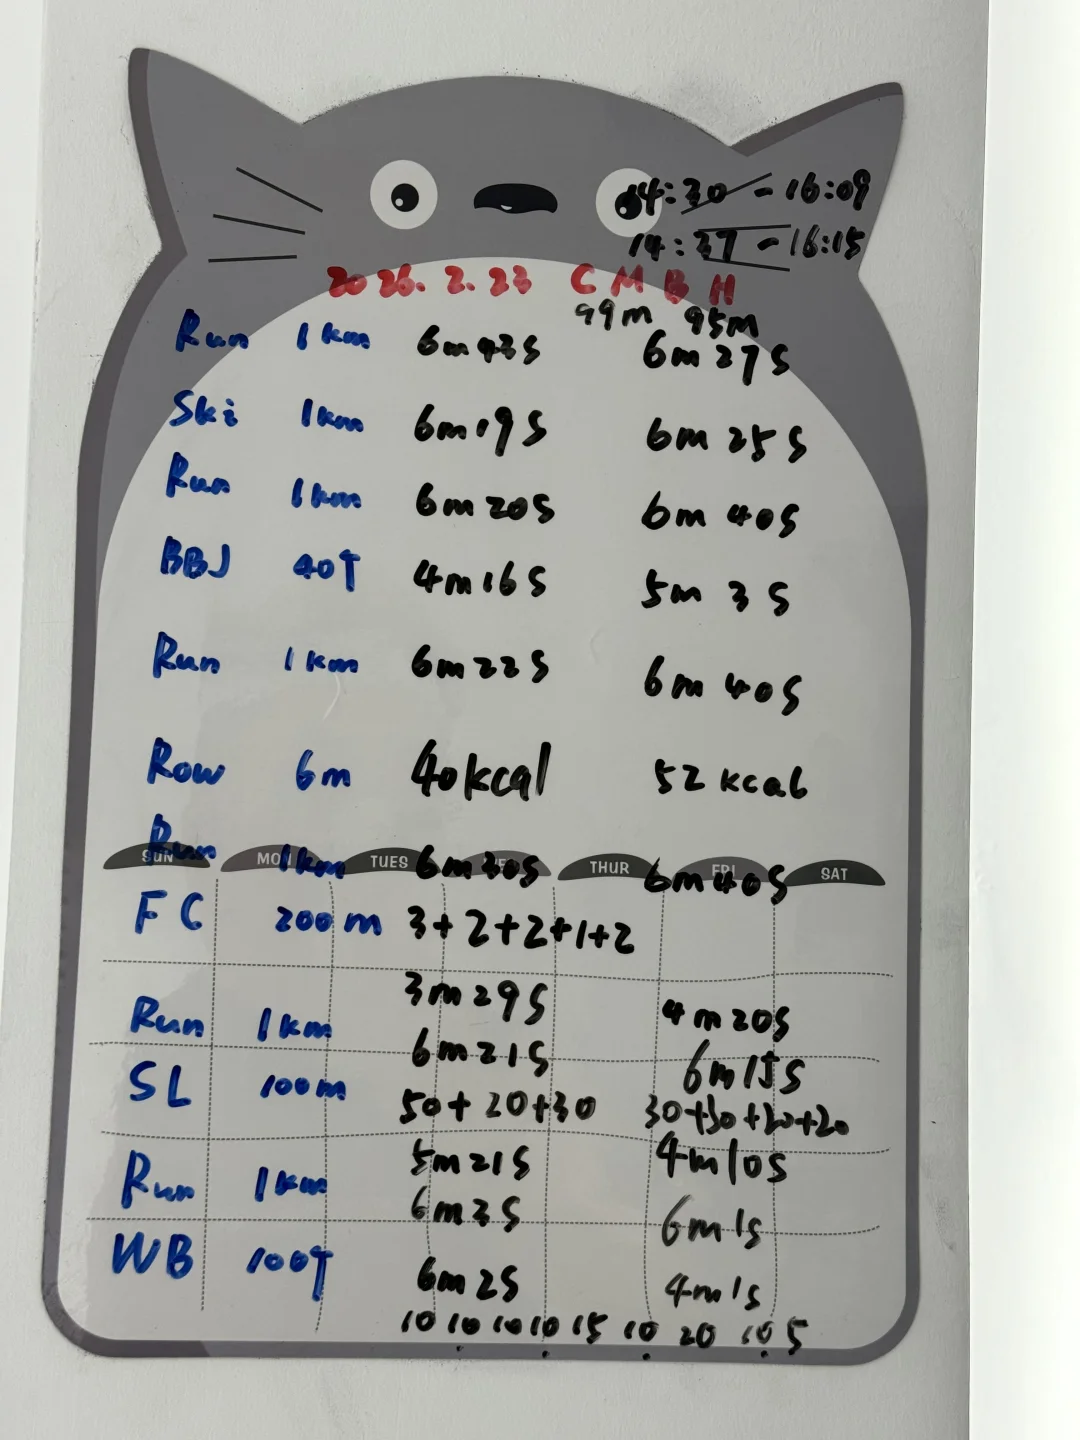 14:30 - 16:09
14:37 - 16:15
2026.2.23 CM BH
99m 95m
Run 1km 6m43s 6m27s
Ski 1km 6m19s 6m25s
Run 1km 6m20s 6m40s
BBJ 40个 4m16s 5m3s
Run 1km 6m22s 6m40s
Row 6m 40kcal 52kcal
Run 1km 6m30s 6m40s
SUN MON TUES THUR FRI SAT
FC 200m 3+2+2+1+2
3m29s 4m20s
Run 1km 6m21s 6m15s
SL 100m 50+20+30 30+30+20+20
5m21s 4m10s
Run 1km 6m3s 6m1s
WB 100个 6m2s 4m1s
10 10 10 10 15 10 20 10 5